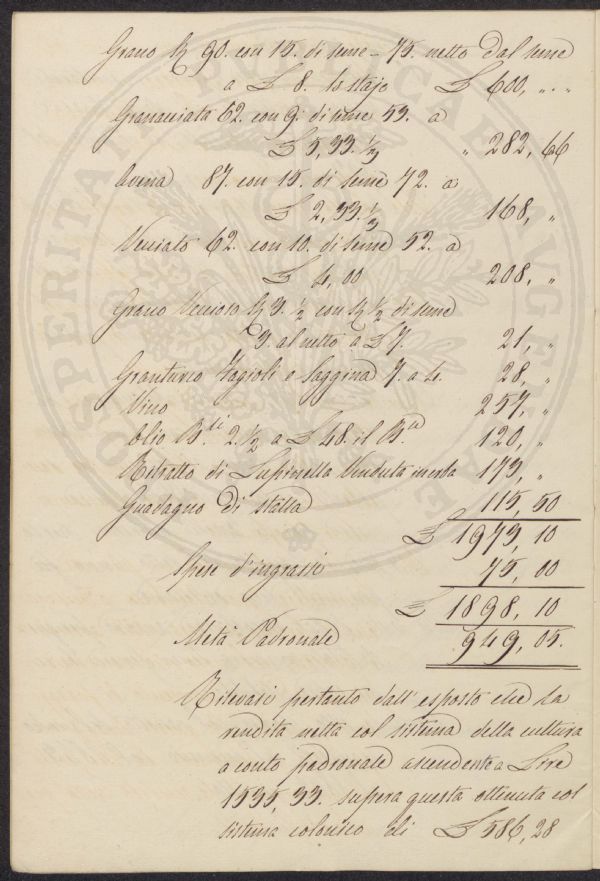 Grano St 90. con 15. di seme – 75. netto dal seme
a £ 8. lo stajo £ 600, „ „
Granacciata 62. con 9. di seme 53. a
£ 5,33.⅓ „ 282,66
Avena 87. con 15. di seme 72. a
£ 2,33.⅓ 168, „
Vecciato 62. con 10. di seme 52. a
£ 4,00 208, „
Grano Veccioso St 3.½ con St ½ di seme
3. al netto a £ 7. 21, „
Granturco Fagioli e Saggina 7. a 4. 28, „
Vino 257, „
Olio B.li 2.½ a £ 48. il B.le 120, „
Ritratto di Lupinella Venduta in erba 173, „
Guadagno di stalla 115,50
£ 1973,10
Spese d'ingrassi 75,00
£ 1898,10
Metà Padronale 949,05.
Rilevasi pertanto dall'esposto che la
rendita netta col sistema della cultura
a conto padronale ascendente a Lire
1535,33. supera questa ottenuta col
sistema colonico di £ 586,28
PROSPERITATI PUBLICAE AVGENDAE